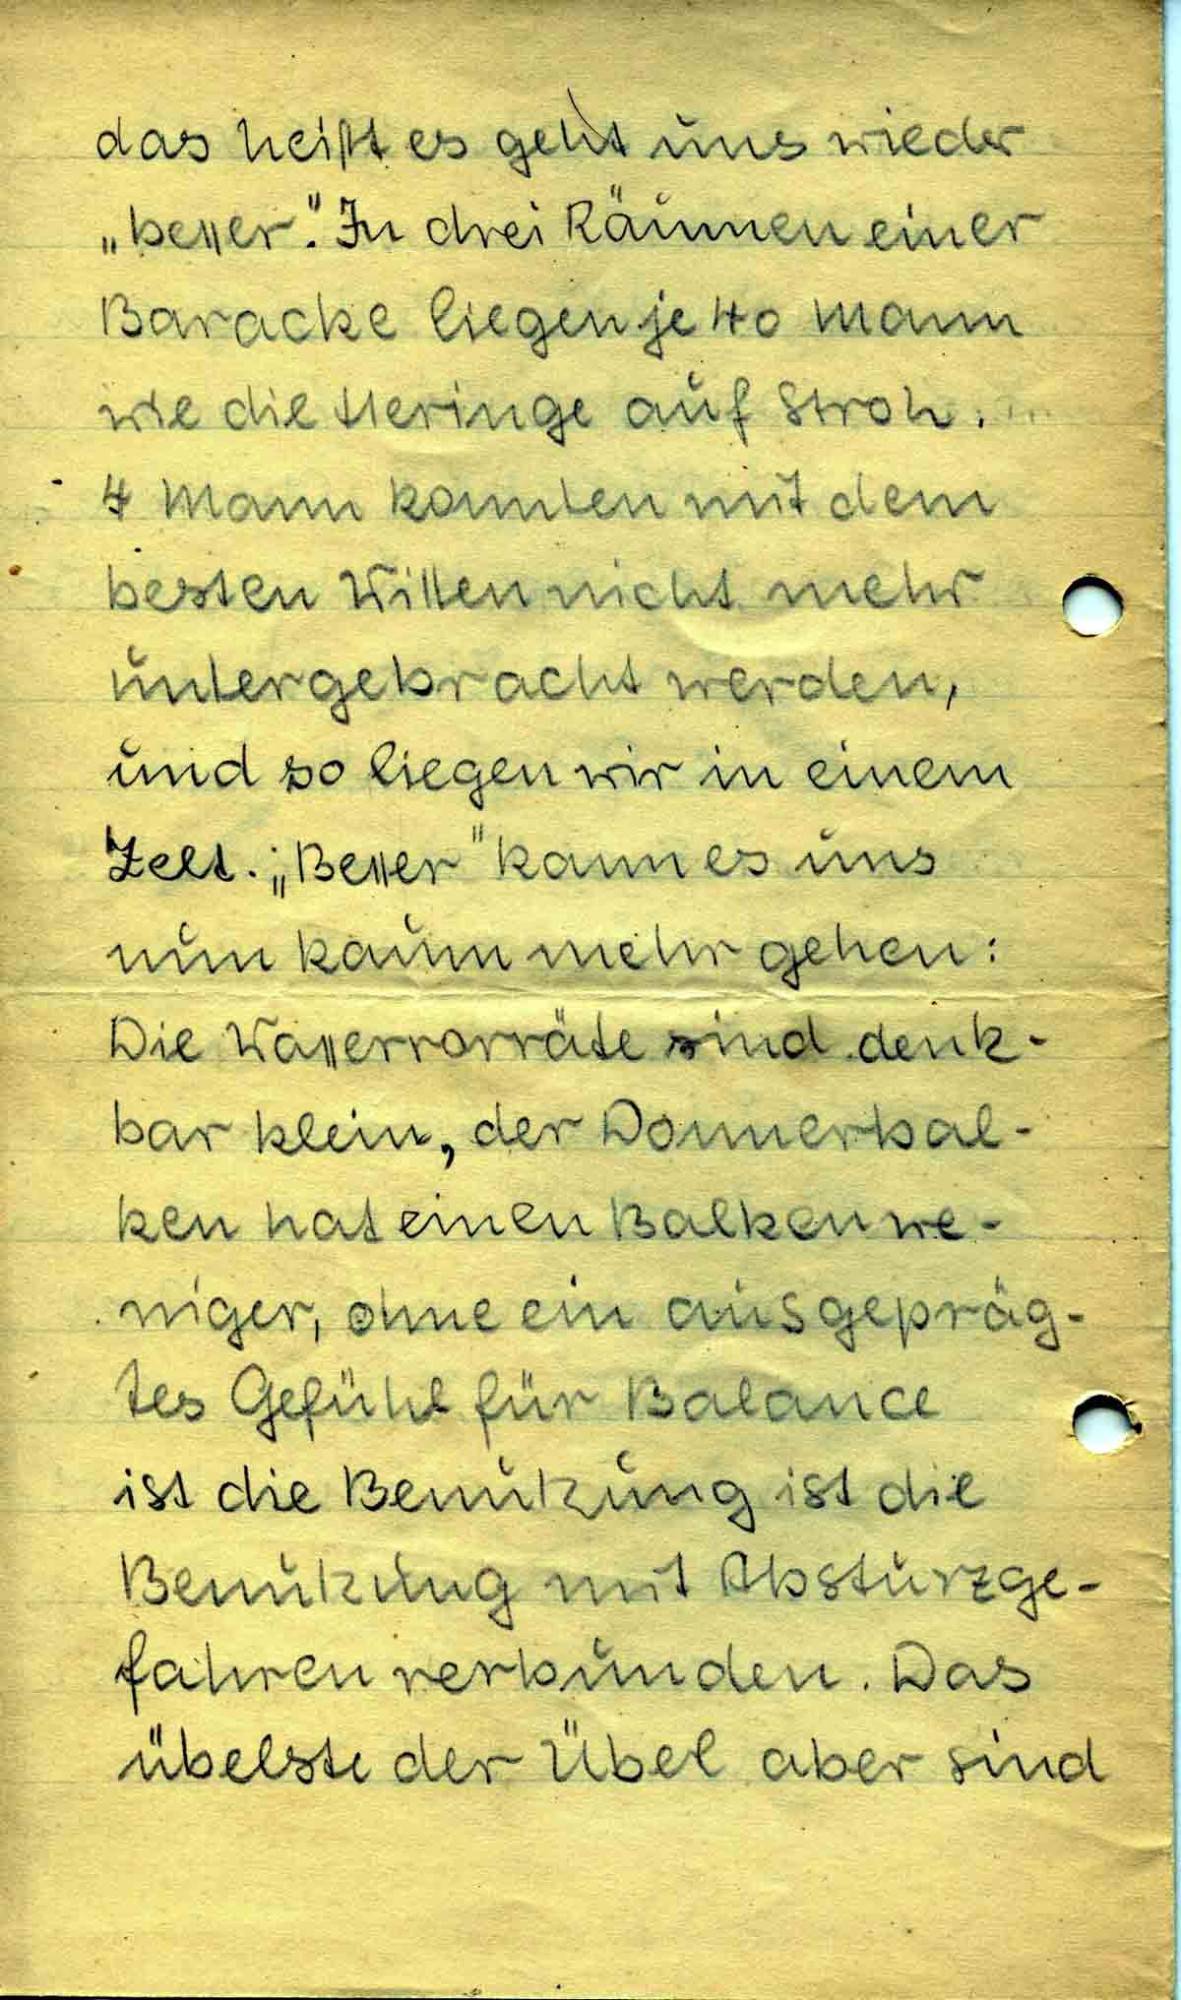 das heißt es geht uns wieder
„besser". In drei Räumen einer
Baracke liegen je 40 Mann
wie die Heringe auf Stroh.
4 Mann konnten mit dem
besten Willen nicht mehr
untergebracht werden,
und so liegen wir in einem
Zelt. „Besser" kann es uns
nun kaum mehr gehen:
Die Wasservorräte sind denk-
bar klein, der Donnerbal-
ken hat einen Balken we-
niger, ohne ein ausgepräg-
tes Gefühl für Balance
ist die Benützung ist die
Benützung mit Absturzge-
fahren verbunden. Das
übelste der Übel aber sind